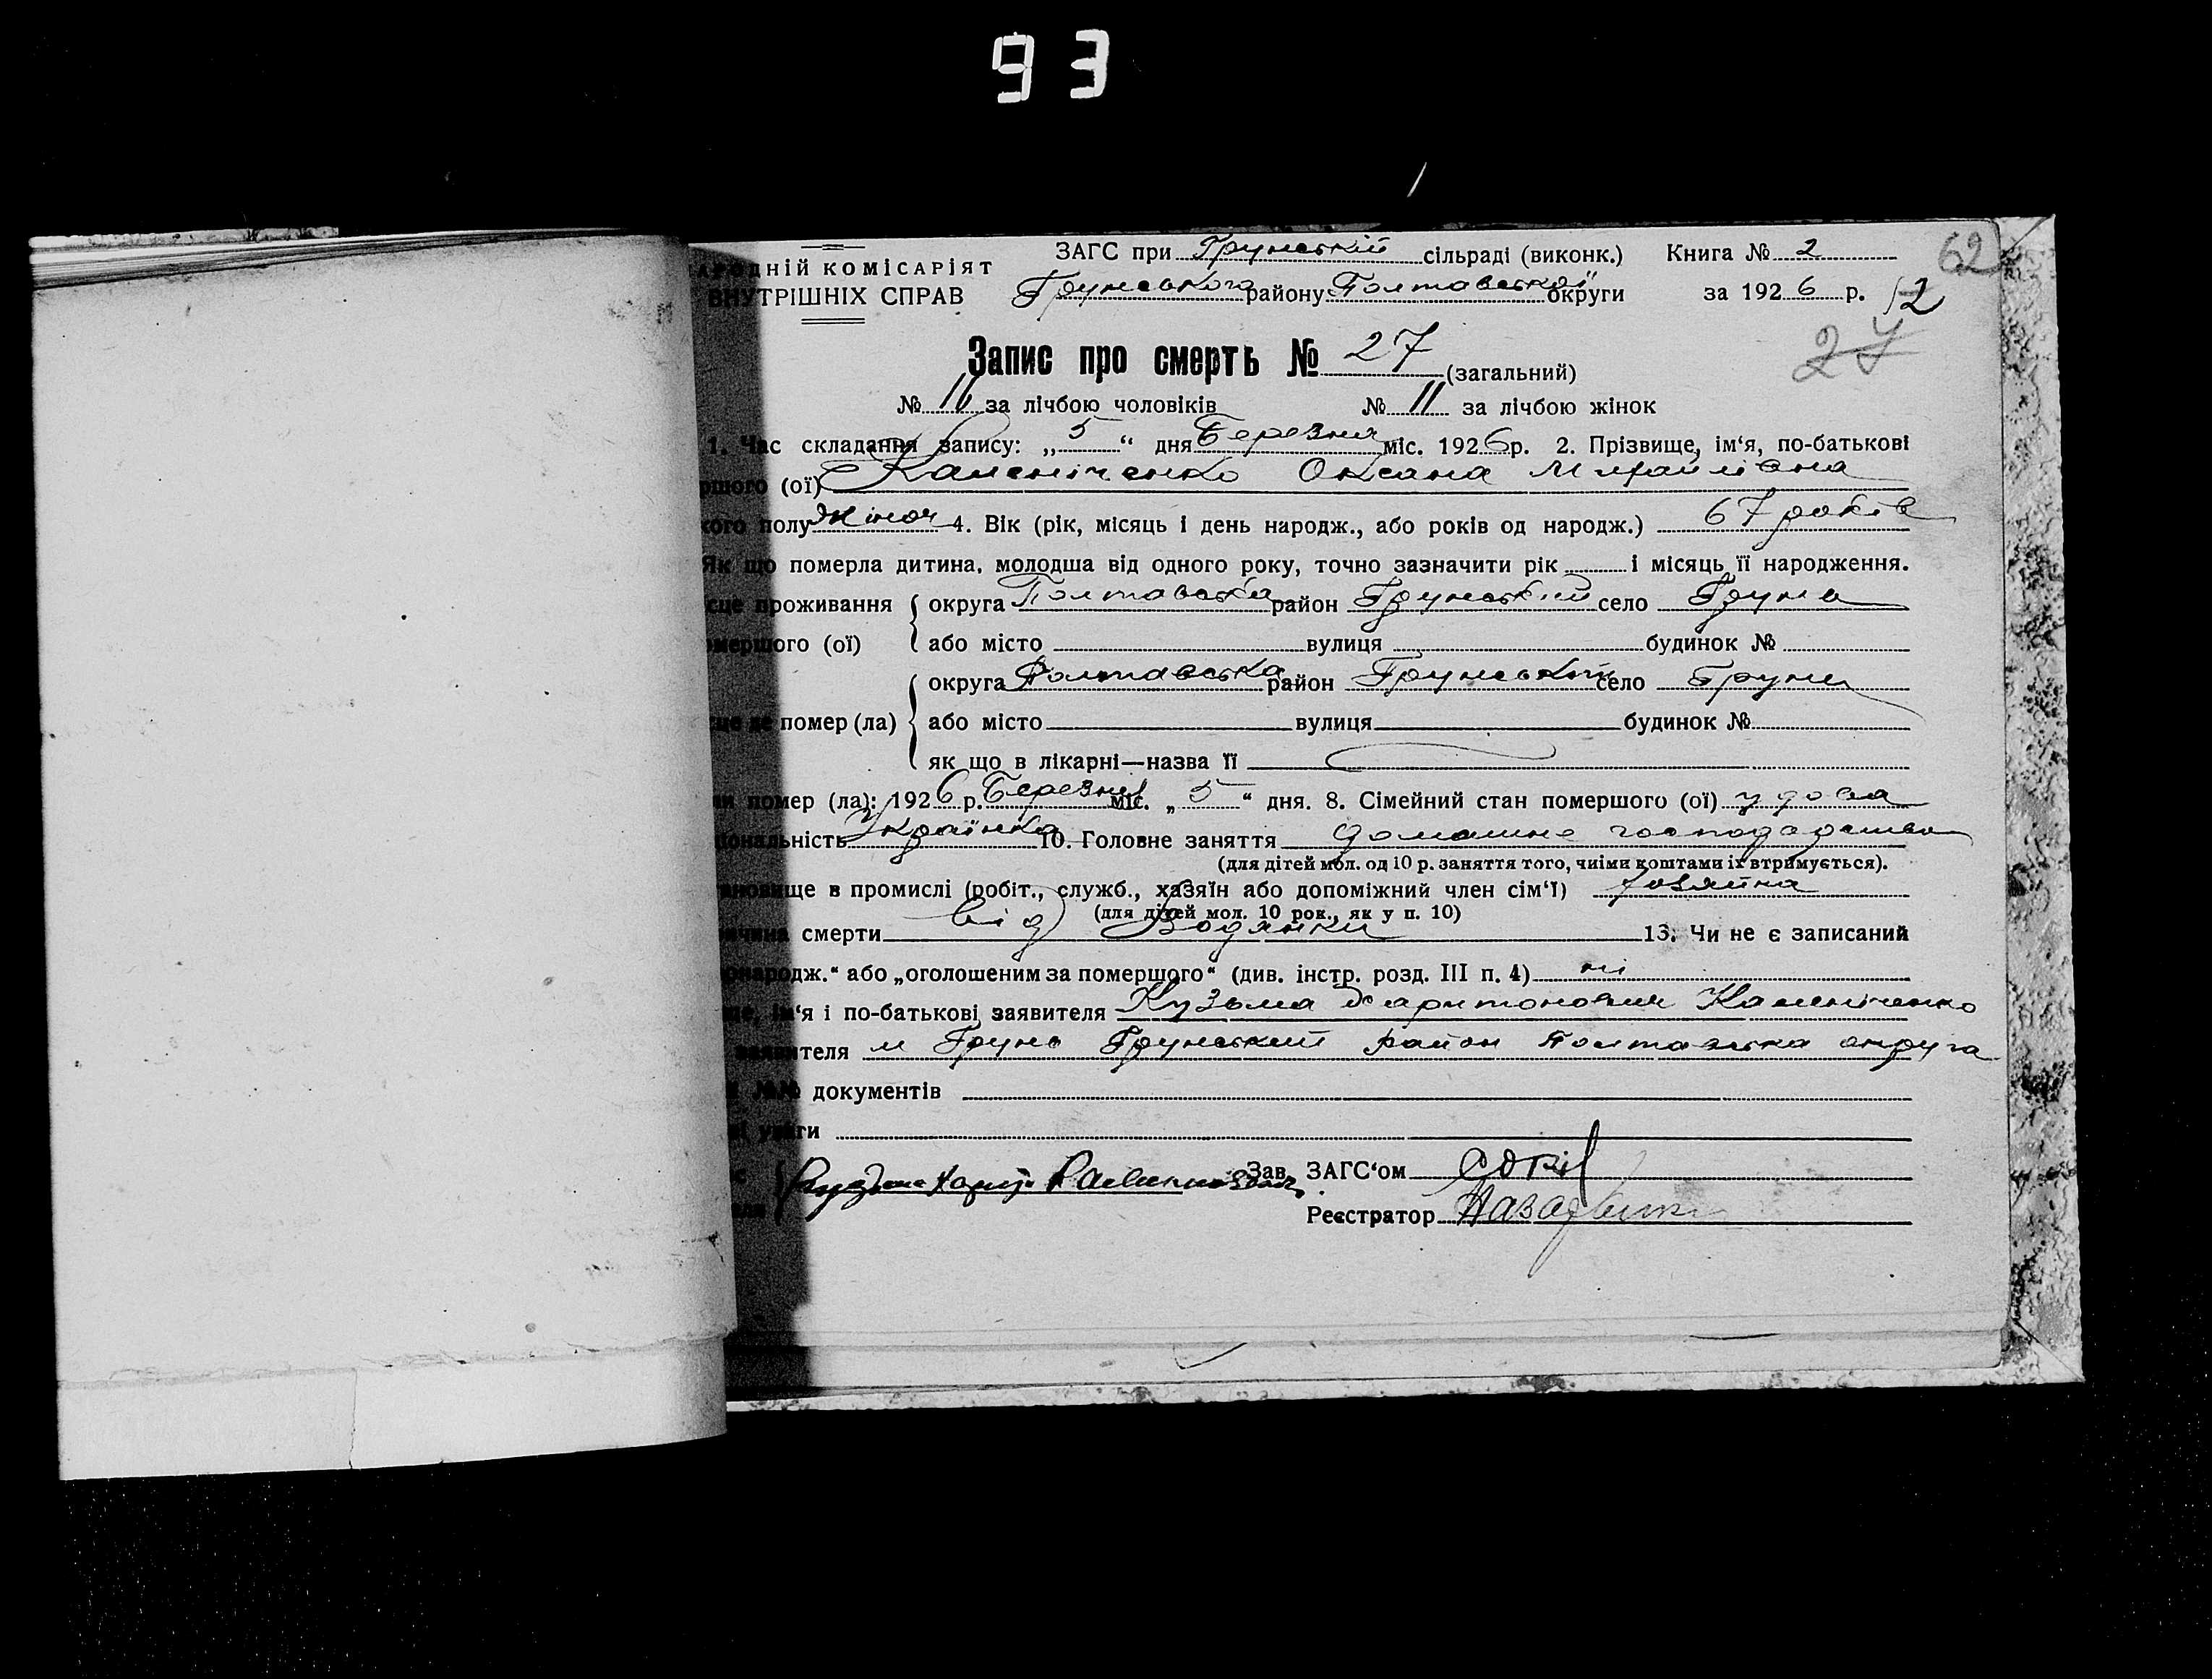 93
НАРОДНІЙ КОМІСАРІЯТ
ВНУТРІШНІХ СПРАВ
ЗАГС при Грунській сільраді (виконк.) Книга № 2
62
Грунського району Полтавської округи за 1926 р.
27
Запис про смерть № 27 (загальний)
№ за лічбою чоловіків № 11 за лічбою жінок
1. Час складання запису: „ 5 “ дня Березня міс. 1926 р. 2. Прізвище, ім‘я, по-батькові
ршого (ої) Каленіченко Оксана Михайлівна
кого полу жіноч 4. Вік (рік, місяць і день народж., або років од народж.) 67 років
Як що померла дитина, молодша від одного року, точно зазначити рік і місяць її народження.
сце проживання округа Полтавська район Грунський село Грунь
мершого (ої) або місто вулиця будинок №
округа Полтавська район Грунський село Грунь
сце де помер (ла) або місто вулиця будинок №
як що в лікарні—назва її
ли помер (ла): 1926 р. Березня міс. „ 5 “ дня. 8. Сімейний стан помершого (ої) удова
ціональність Українка 10. Головне заняття домашнє господарство
(для дітей мол. од 10 р. заняття того, чиїми коштами їх втримується).
ановище в промислі (робіт., служб., хазяїн або допоміжний член сім‘ї) хозяйка
(для дітей мол. 10 рок., як у п. 10)
ичина смерти від Водянки 13. Чи не є записаний
онародж.“ або „оголошеним за помершого“ (див. інстр. розд. III п. 4) ні
ще, ім‘я і по-батькові заявителя Кузьма Харитонович Каленіченко
заявителя м Грунь Грунський район Полтавська округа
№№ документів
уваги
Зав. ЗАГС‘ом
Реєстратор